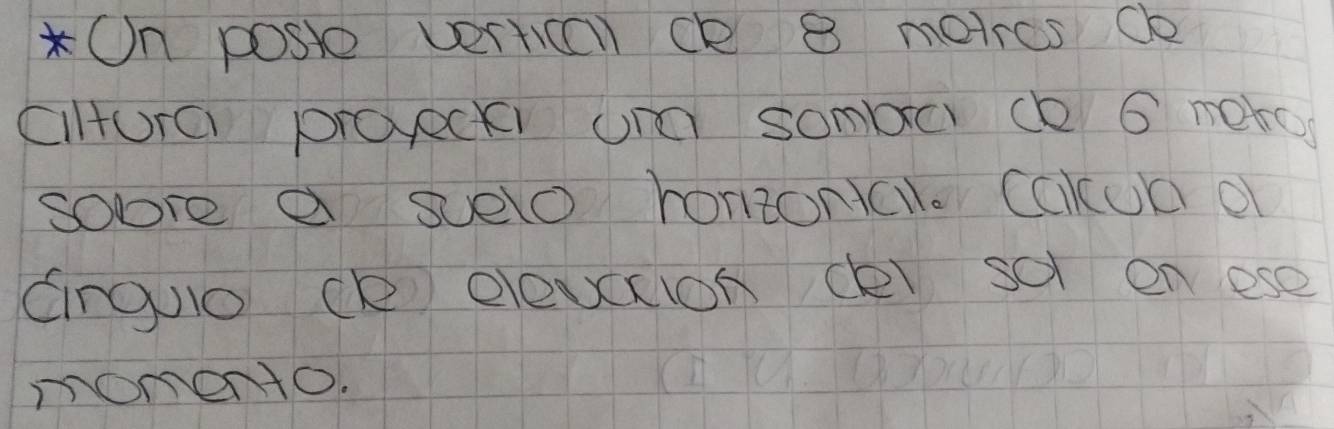 * Un poste vertical de 8 metros de
altura proyecta una sombra de 6 metros
sobre el suelo horizontal. Calcula el
ángulo de elevacion del sol en ese
momento.